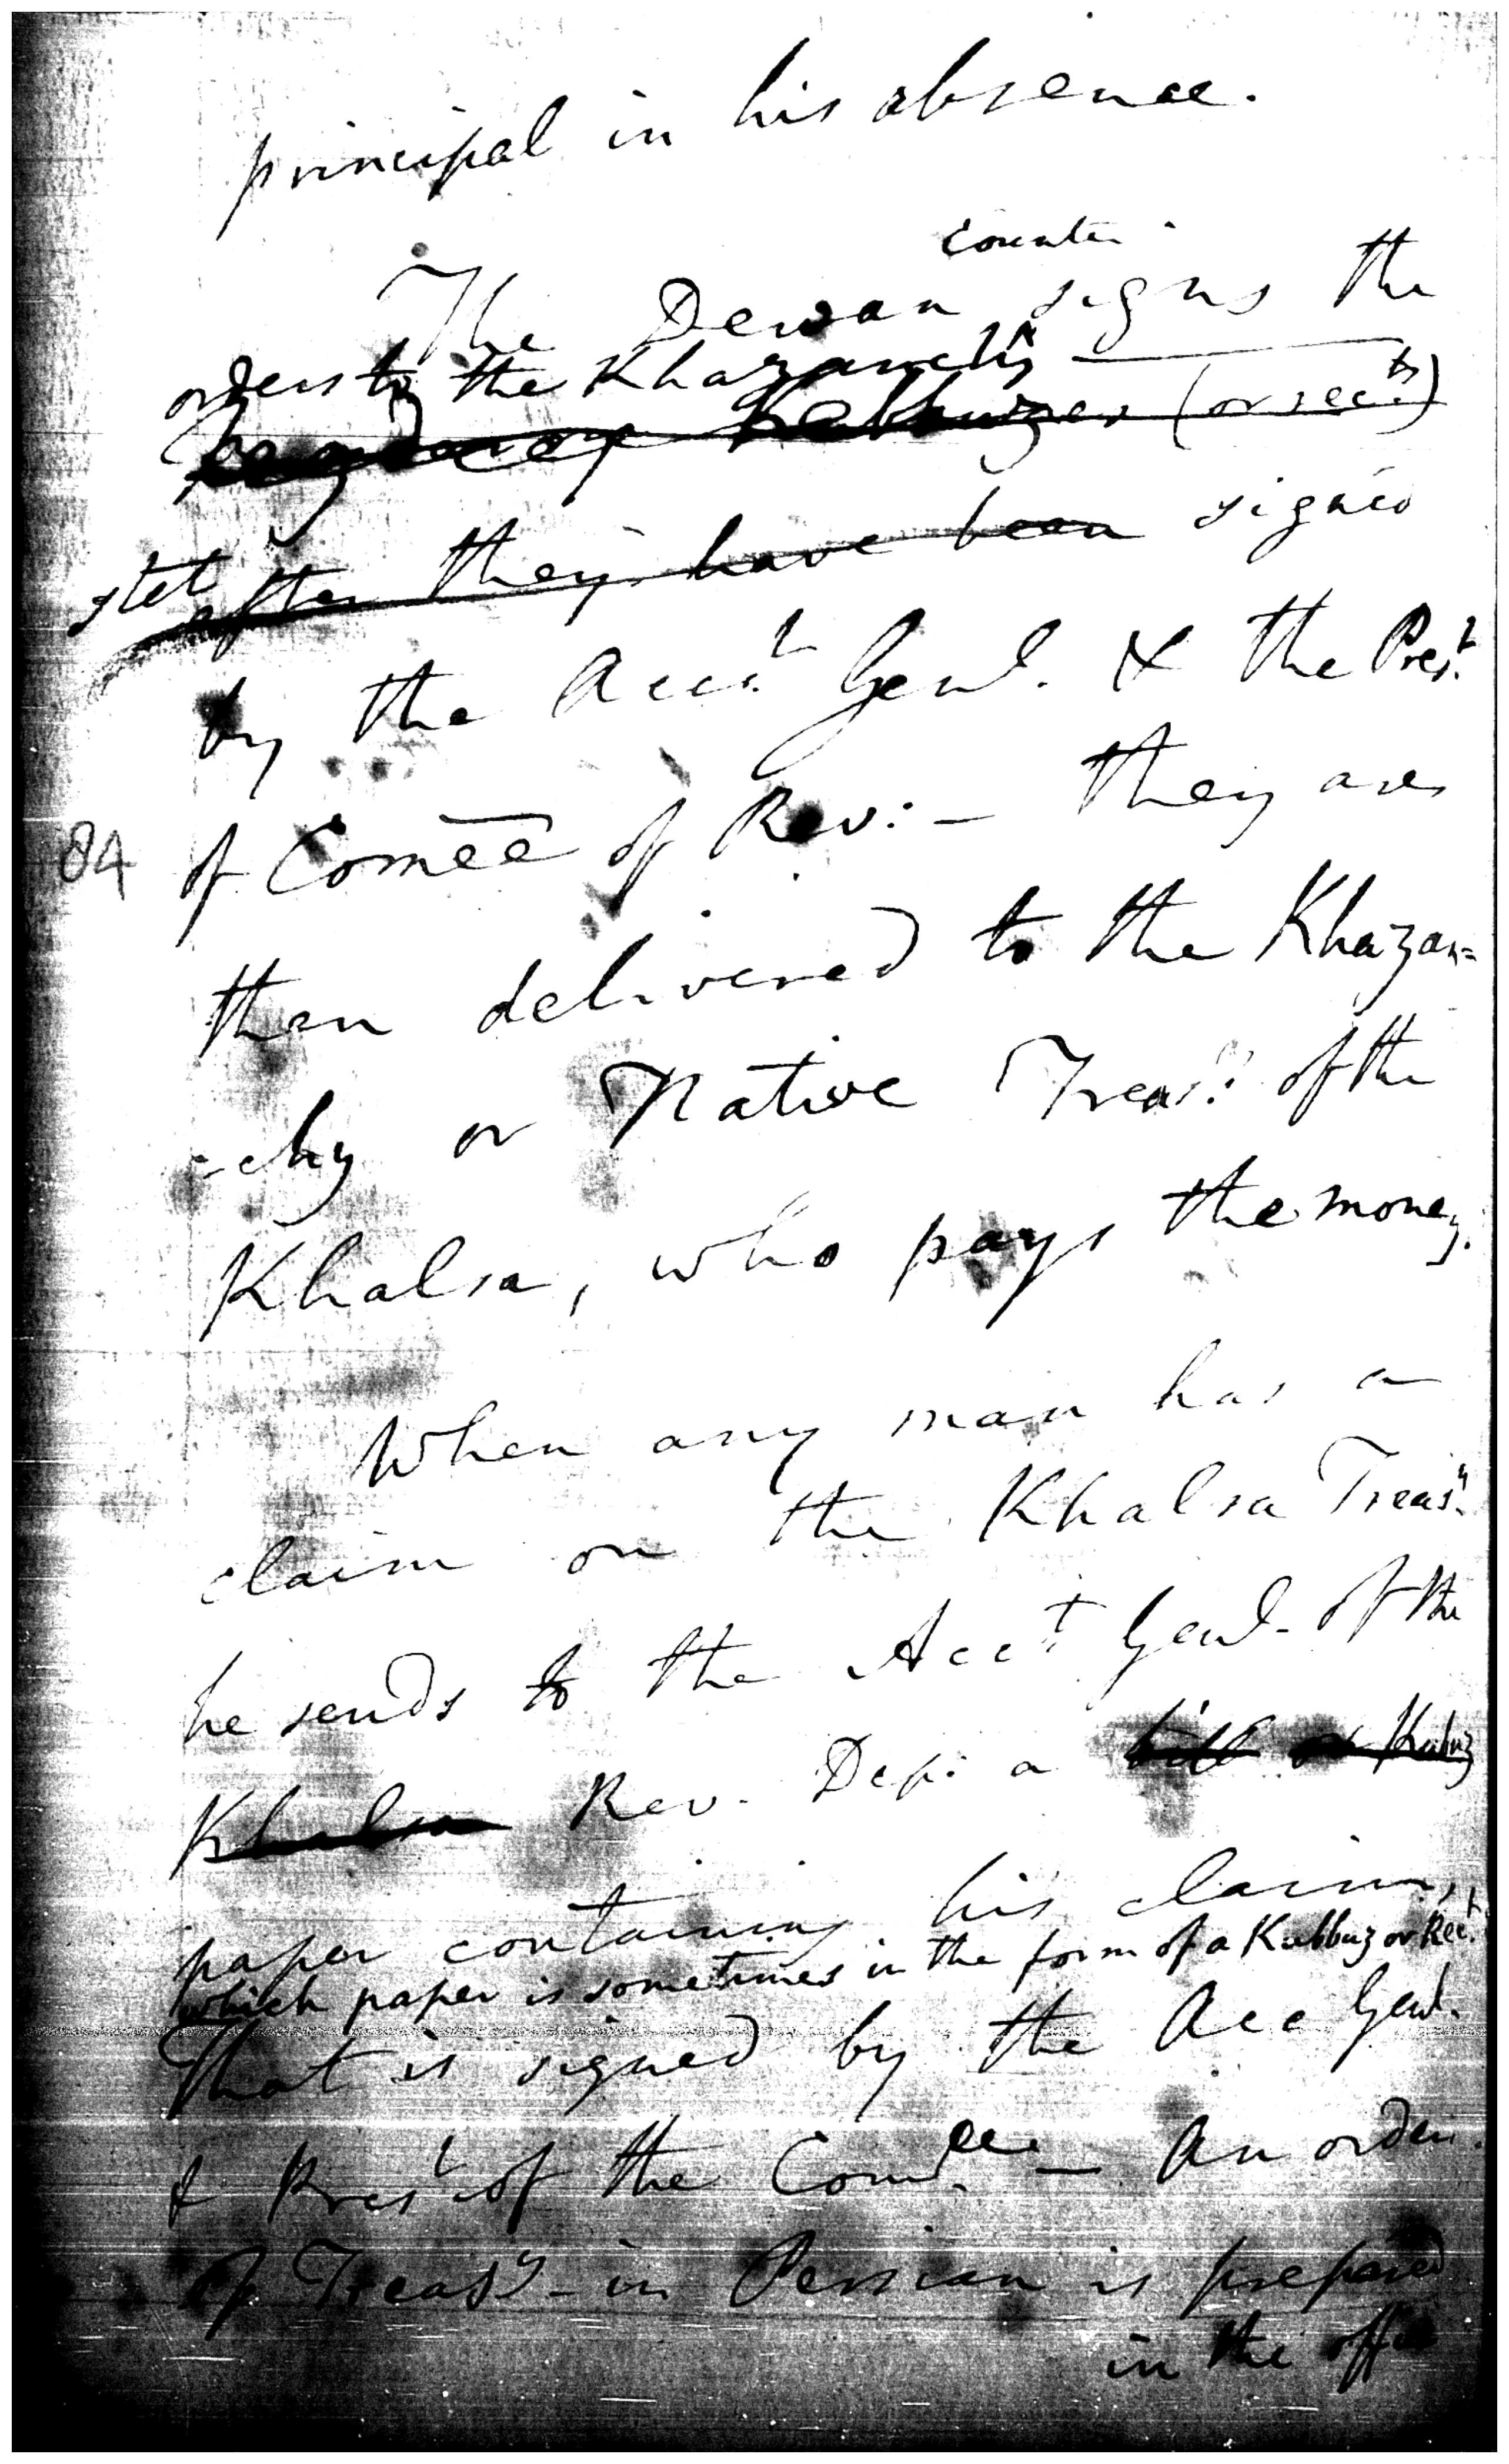 principal in his absence.
counter
The Dewan signs the
orders to the Khazanchy
Kabbuzes (or rec.ts)
stet after they have been signed
by the Acc.t Genl. & the Pres.t
of Comēe of Rev: — they are
then delivered to the Khazan=
=chy or Native Treas.r of the
Khalsa, who pays the money.
When any man has a
claim on the Khalsa Treas.y
he sends to the Acc.t Genl. of the
Khalsa Rev. Dep: a bill or Kabuz
paper containing his claim,
which paper is sometimes in the form of a Kubbuz or Rec.t
That is signed by the Acc Genl.
& Pres.t of the Com.ee — An order
of Treas.y in Persian is prepared
in the office
84